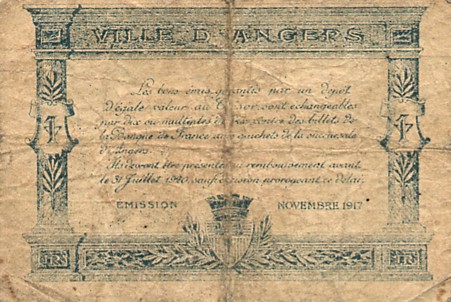 VILLE D'ANGERS
Les bons émis garantis par un dépôt
d'égale valeur au Trésor sont échangeables
par dix ou multiples de dix contre des billets de
la Banque de France aux guichets de la succursale
d'Angers.
Ils devront être présentés au remboursement avant
le 31 Juillet 1920, sauf décision prorogeant ce délai.
EMISSION NOVEMBRE 1917